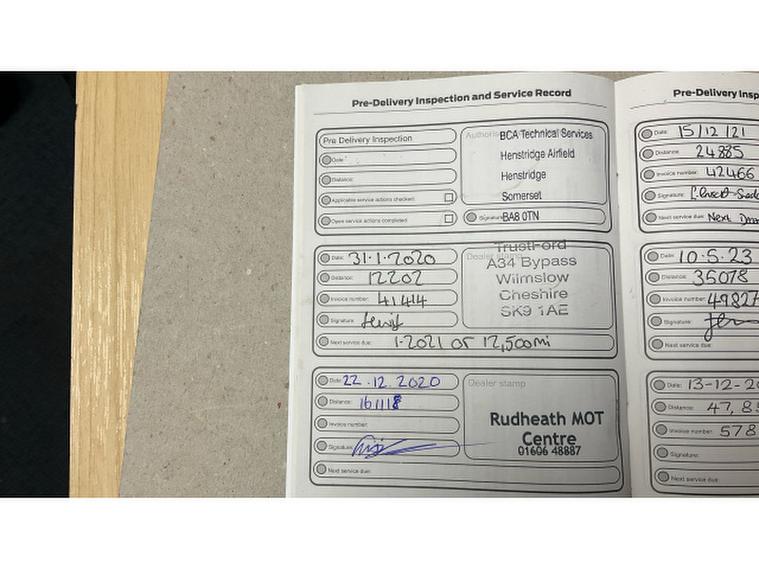 Pre-Delivery Inspection and Service Record
Pre Delivery Inspection
Date:
Distance:
Applicable service actions checked:
Open service actions completed:
BCA Technical Services
Henstridge Airfield
Henstridge
Somerset
Signature
BA8 0TN
Date: 31-1-2020
Distance: 12202
Invoice number: 41414
Signature:
Next service due: 1-2021 or 12,500mi
Dealer stamp
TrustFord
A34 Bypass
Wilmslow
Cheshire
SK9 1AE
Date: 22.12.2020
Distance:
Invoice number:
Signature:
Next service due:
Dealer stamp
Rudheath MOT
Centre
01606 48887
Pre-Delivery Insp
Date: 15/12/21
Distance: 24885
Invoice number: 42466
Signature:
Next service due: Next
Date: 10.5.23
Distance: 35078
Invoice number: 4982
Signature:
Next service due:
Date: 13-12-20
Distance: 47,8
Invoice number: 578
Signature:
Next service due: